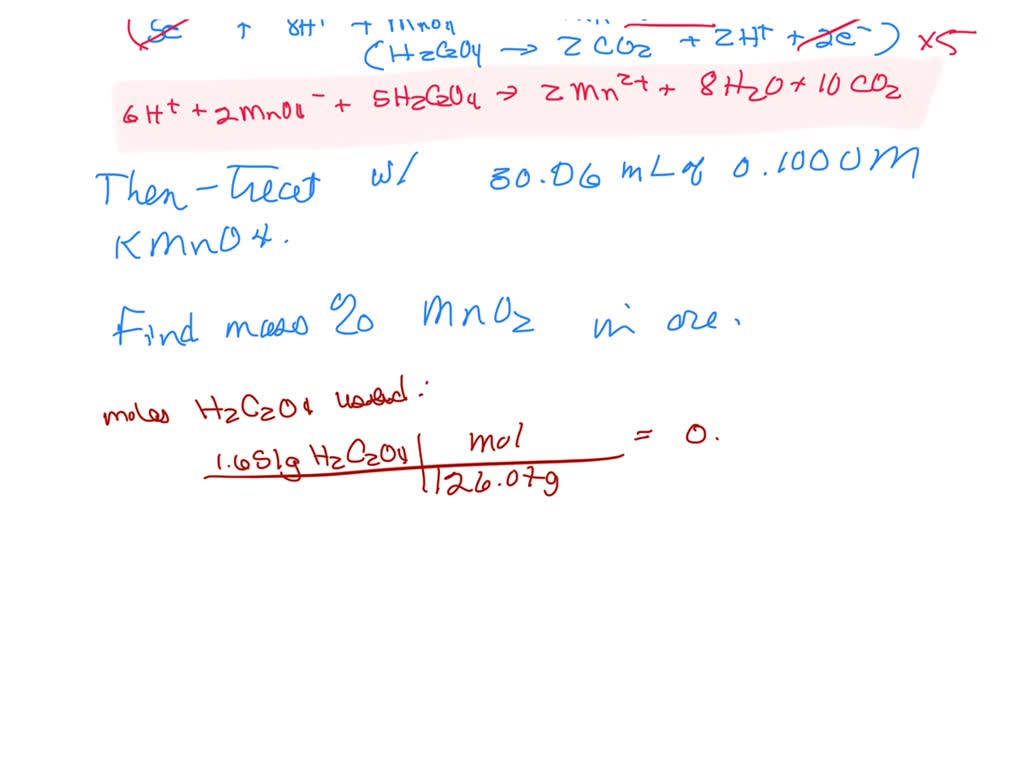 (5e + 8H⁺ + MnO4
(H₂C₂O₄ → 2 CO₂ + 2H⁺ + 2e⁻) ×5
6H⁺ + 2MnO4⁻ + 5H₂C₂O₄ → 2 Mn²⁺ + 8H₂O + 10 CO₂
Then - Treat w/ 30.06 mL of 0.1000M
KMnO4.
Find mass % MnO₂ in ore.
moles H₂C₂O₄ used:
1.651g H₂C₂O₄ | mol = 0.
126.07g